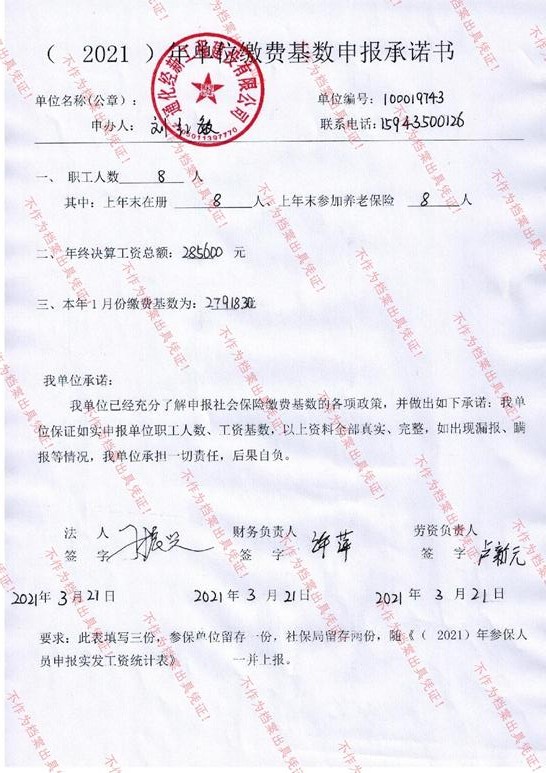 ( 2021 ) 年单位缴费基数申报承诺书
单位名称(公章): 单位编号: 100019743
申办人: 刘 敏 联系电话: 15943500126
一、 职工人数 8 人
其中: 上年末在册 8 人、上年末参加养老保险 8 人
二、年终决算工资总额: 285600 元
三、本年1月份缴费基数为: 279183元
我单位承诺:
我单位已经充分了解申报社会保险缴费基数的各项政策, 并做出如下承诺: 我单
位保证如实申报单位职工人数、工资基数, 以上资料全部真实、完整, 如出现漏报、瞒
报等情况, 我单位承担一切责任, 后果自负。
法 人 财务负责人 劳资负责人
签 字 签 字 许萍 签 字 卢新元
2021年 3月 21日 2021年 3月 21日 2021年 3月 21日
要求: 此表填写三份, 参保单位留存一份, 社保局留存两份, 随《( 2021) 年参保人
员申报实发工资统计表》 一并上报。
不作为档案出具凭证!